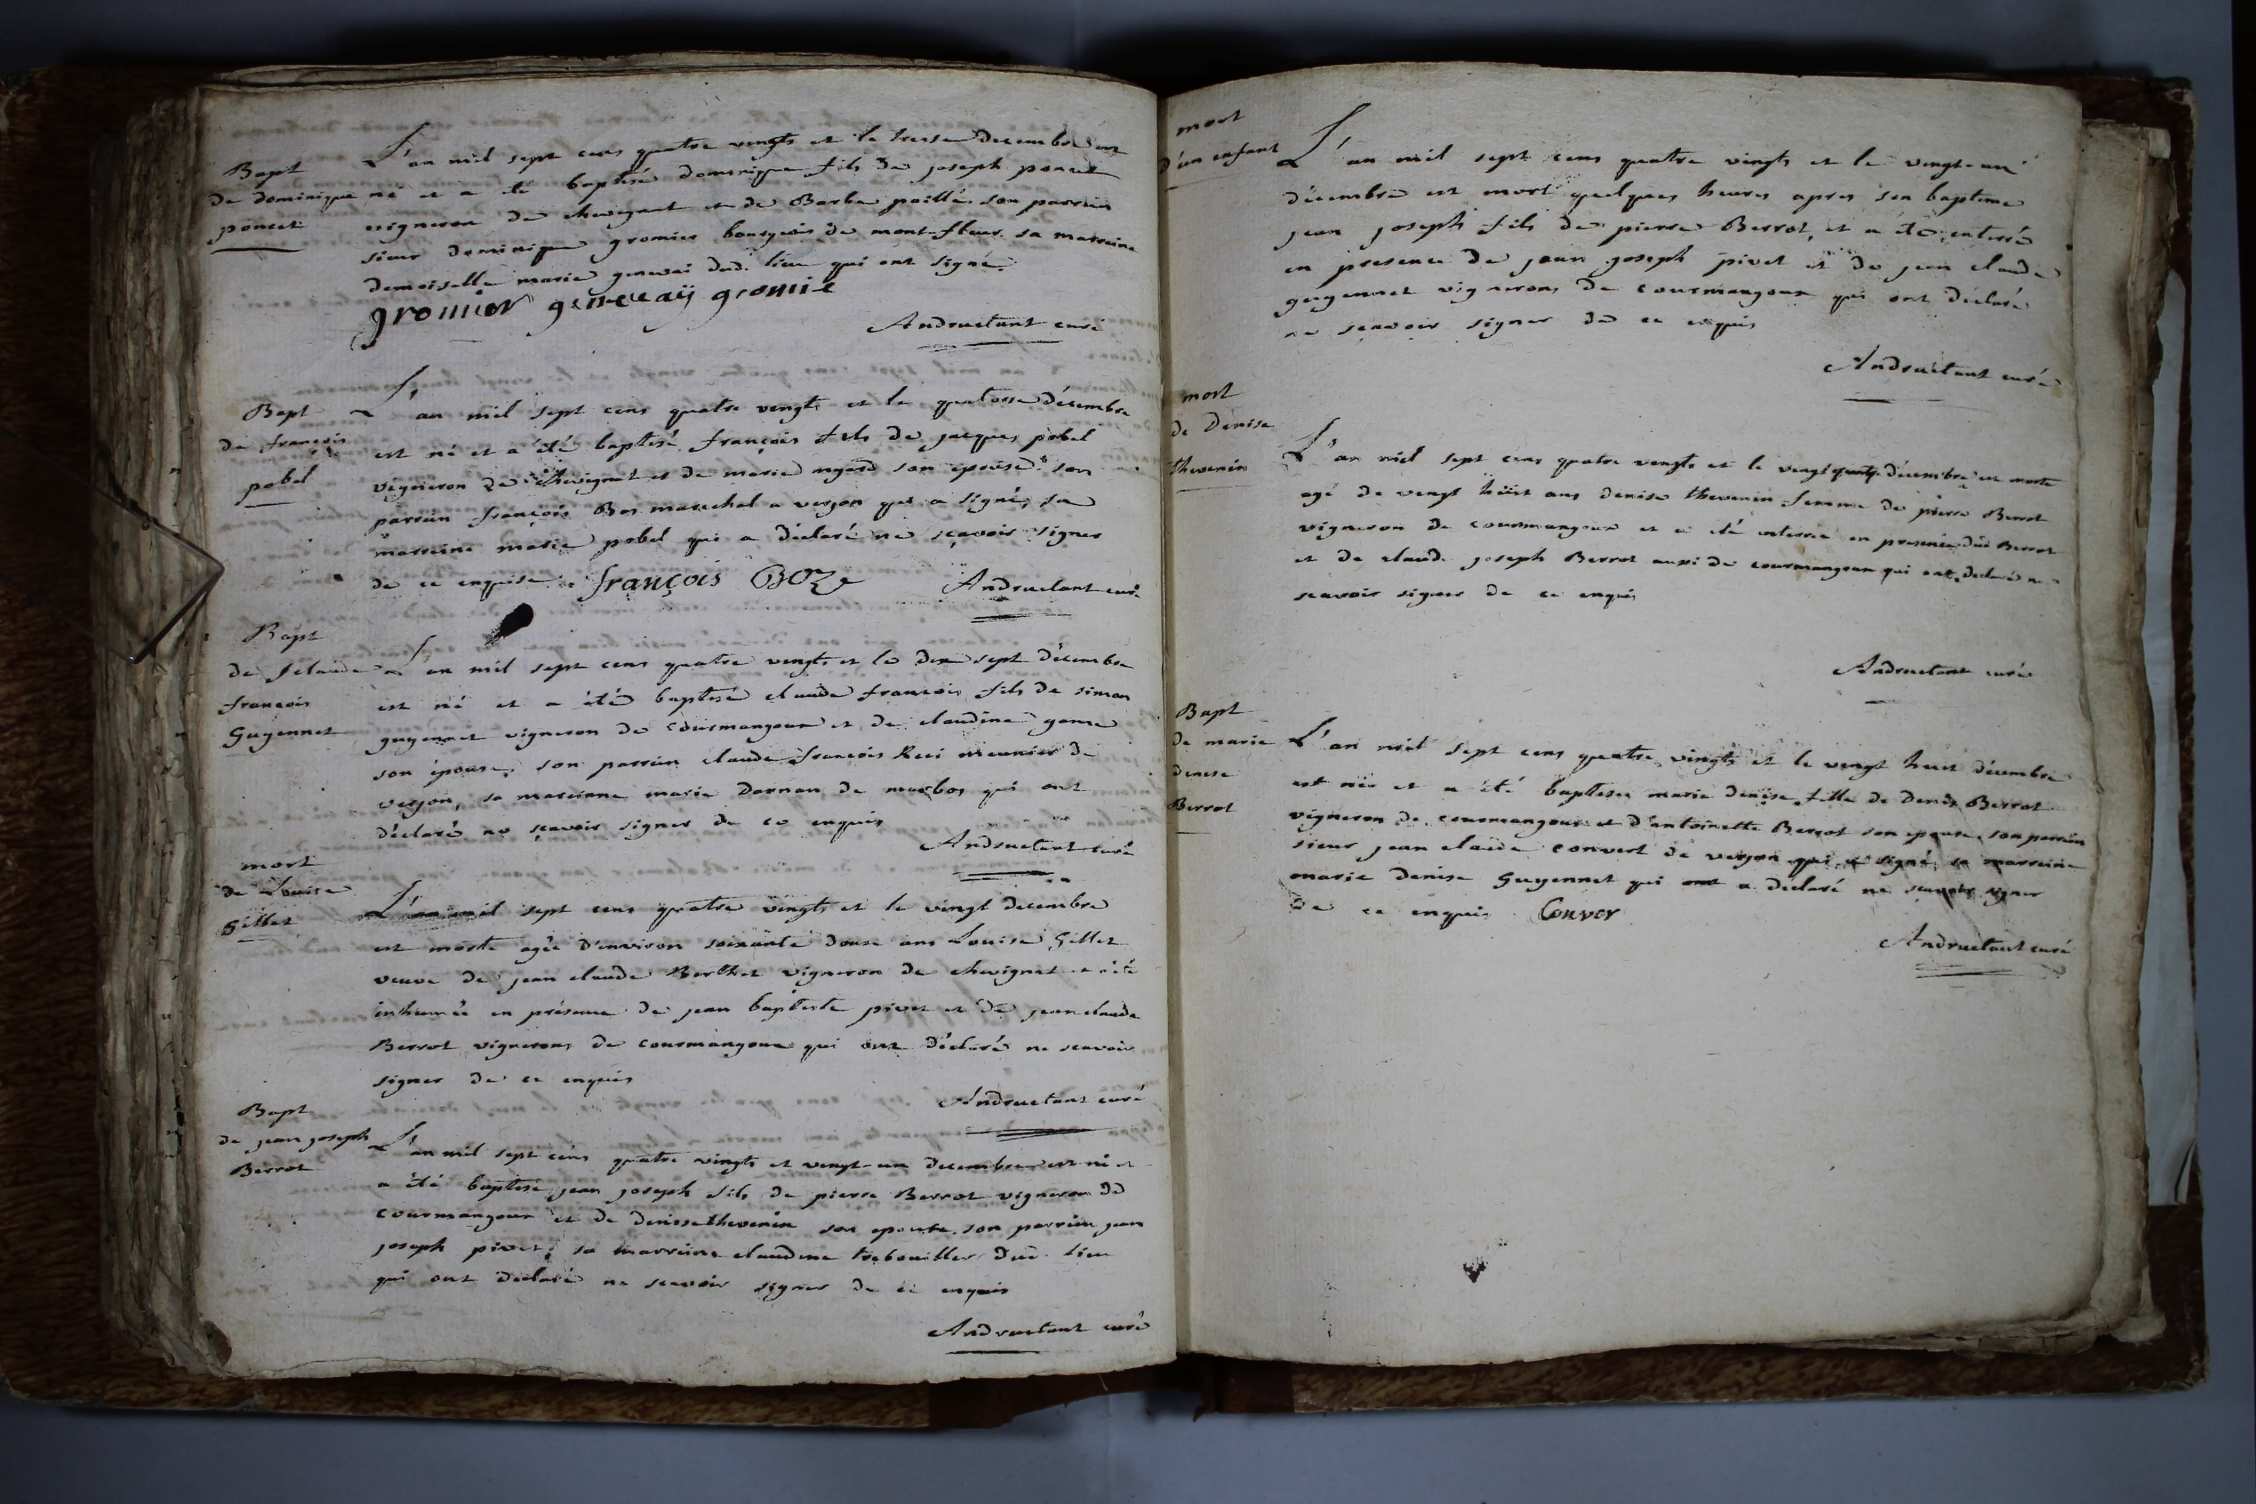 Bapt
de dominique
poncet
L'an mil sept cens quatre vingts et le treise decembre est
né et a été baptisé dominique fils de joseph poncet
vigneron de chevignat et de Barbe paillé. son parrein
sieur dominique gromier bourgeois de mont-fleur. sa marreine
demoiselle marie genevai dud. lieu qui ont signé.
gromier genevay gromié
Andructant curé
Bapt
de françois
pobel
L'an mil sept cens quatre vingts et le quatorse décembre
est né et a été baptisé françois fils de jacques pobel
vigneron de chevignat et de marie son épouse. son
parrein françois Bos marechal a verjon qui a signé, sa
marreine marie pobel qui a déclaré ne sçavoir signer
de ce enquise. françois BOZe
Andructant curé
Bapt
de Jclaude
françois
Guyennet
L'an mil sept cens quatre vingts et le dix sept décembre
est né et a été baptisé claude françois fils de simon
guyennet vigneron de courmangoux et de claudine
son épouse. son parrein claude françois Reci meunier de
verjon, sa marreinne marie Dornan de marbos qui ont
déclaré ne sçavoir signer de ce enquis
Andructant curé
mort
de Louise
Gillet
L'an mil sept cens quatre vingts et le vingt decembre
est morte agée d'environ soixante douse ans Louise Gillet
veuve de jean claude Berthet vigneron de chevignat et a été
inhumée en présence de jean baptiste pivet et de jean claude
Berrot vignerons de courmangoux qui ont déclaré ne scavoir
signer de ce enquis
Andructant curé
Bapt
de jean joseph
Berrot
L'an mil sept cens quatre vingts et vingt-un decembre est né et
a été baptisé jean joseph fils de pierre Berrot vigneron de
courmangoux et de denisse thevenin son epouse. son parrein jean
joseph pivet, sa marreine claudine trebouillet dud. lieu
qui ont déclaré ne scavoir signer de ce enquis
Andructant curé
mort
d'un enfant
L'an mil sept cens quatre vingts et le vingt-un
décembre est mort quelques heures apres son baptême
jean joseph fils de pierre Berrot, et a été enterré
en presence de jean joseph pivet et de jean claude
guyennet vignerons de courmangoux qui ont déclaré
ne sçavoir signer de ce enquis
Andructant curé
mort
de Denise
thevenin
L'an mil sept cens quatre vingts et le vingt décembre est morte
agé de vingt huit ans denise thevenin femme de pierre Berrot
vigneron de courmangoux et a été enterrée en presence dud Berrot
et de claude joseph Berrot aussi de courmangoux qui ont déclaré ne
scavoir signer de ce enquis
Andructant curé
Bapt
de marie
denise
Berrot
L'an mil sept cens quatre vingts et le vingt huit décembre
est née et a été baptisée marie denise fille de denis Berrot
vigneron de courmangoux et d'antoinette Berrot son epouse. son parrein
sieur jean claude convert de verjon qui a signé, sa marreine
marie denise Guyennet qui ont a déclaré ne scavoir signer
de ce enquis Conver
Andructant curé